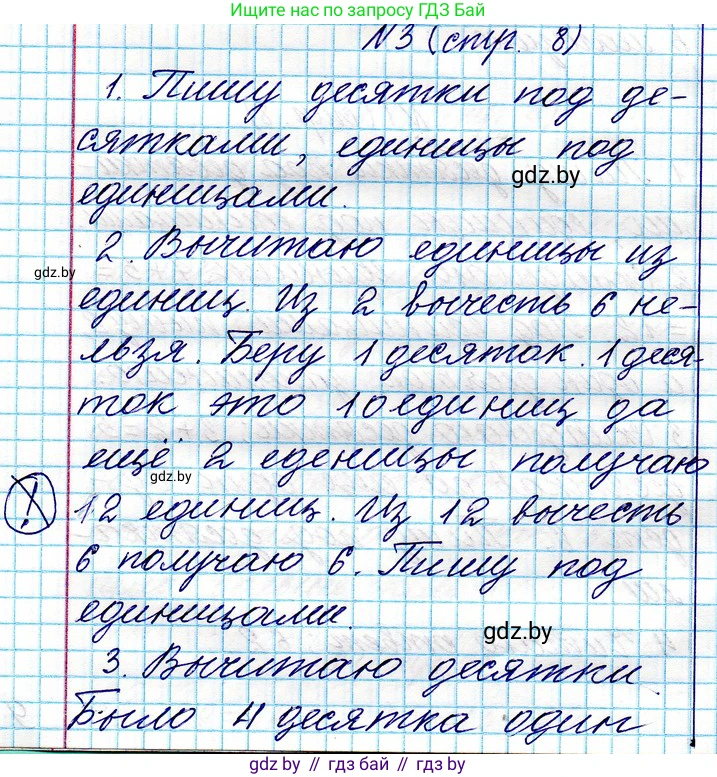 Ищите нас по запросу ГДЗ Бай
№3 (стр. 8)
1. Пишу десятки под де-
сятками, единицы под
gdz.by
единицами.
2. Вычитаю единицы из
gdz.by
единиц. Из 2 вычесть 6 не-
льзя. Беру 1 десяток. 1 деся-
ток это 10 единиц да
ещё 2 еденицы получаю
gdz.by
! 12 единиц. Из 12 вычесть
6 получаю 6. Пишу под
единицами.
gdz.by
3. Вычитаю десятки.
Было 4 десятка один
gdz.by // гдз бай // gdz.by